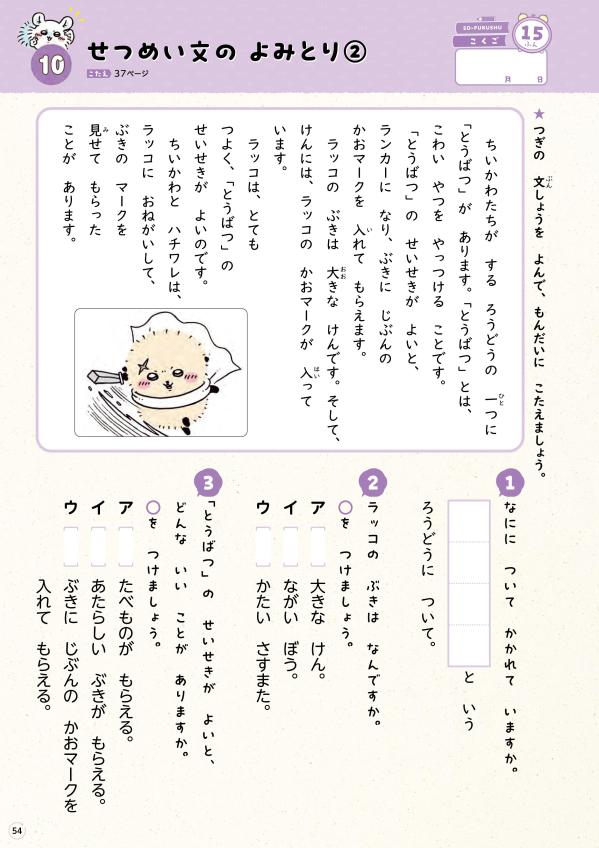 10
せつめい文の よみとり②
こたえ 37ページ
SO-FUKUSHU
こくご
15
ふん
月 日
★つぎの 文しょうを よんで、もんだいに こたえましょう。
ちいかわたちが する ろうどうの 一つに
「とうばつ」が あります。「とうばつ」とは、
こわい やつを やっつける ことです。
「とうばつ」の せいせきが よいと、
ランカーに なり、ぶきに じぶんの
かおマークを 入れて もらえます。
ラッコの ぶきは 大きな けんです。そして、
けんには、ラッコの かおマークが 入って
います。
ラッコは、とても
つよく、「とうばつ」の
せいせきが よいのです。
ちいかわと ハチワレは、
ラッコに おねがいして、
ぶきの マークを
見せて もらった
ことが あります。
1
なにに ついて かかれて いますか。
と いう
ろうどうに ついて。
2
ラッコの ぶきは なんですか。
○を つけましょう。
ア 大きな けん。
イ ながい ぼう。
ウ かたい さすまた。
3
「とうばつ」の せいせきが よいと、
どんな いい ことが ありますか。
○を つけましょう。
ア たべものが もらえる。
イ あたらしい ぶきが もらえる。
ウ ぶきに じぶんの かおマークを
入れて もらえる。
54